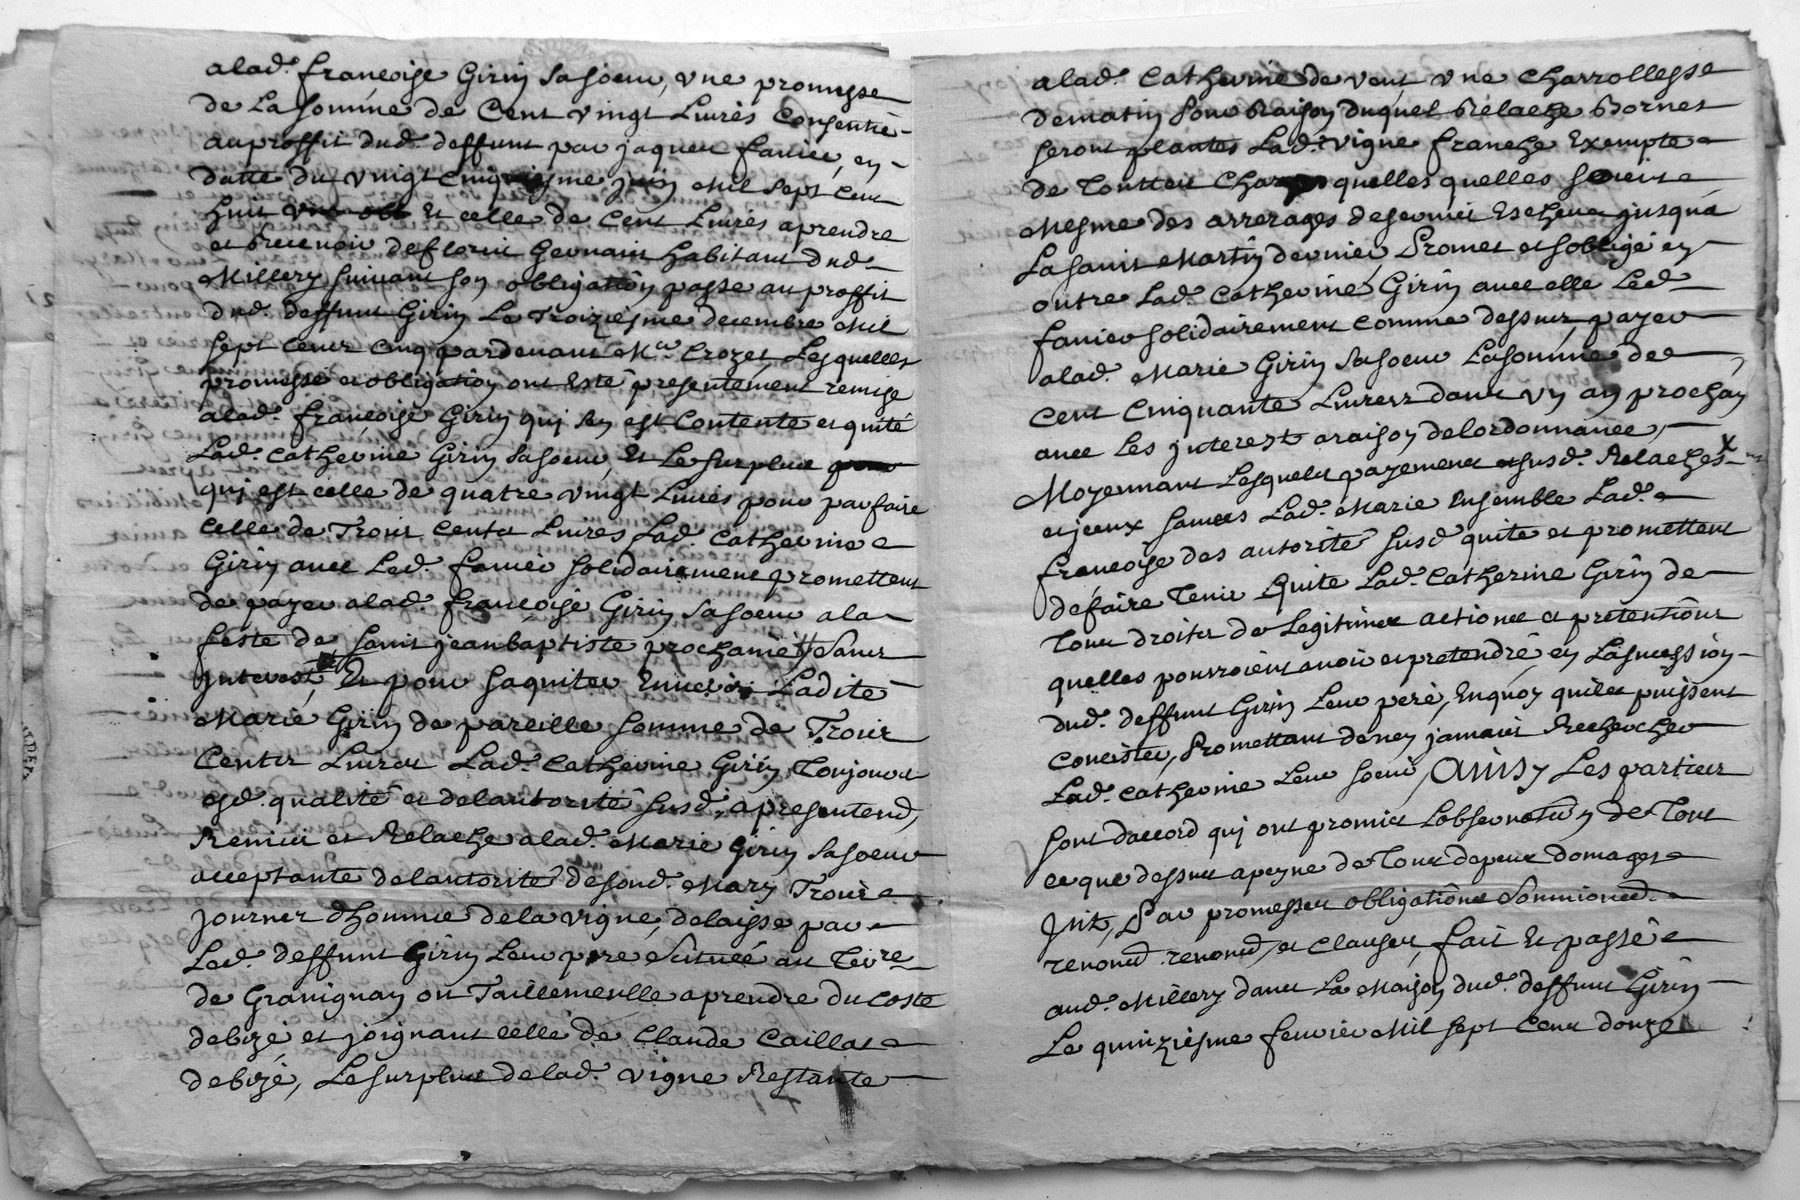 alad. françoise Girin sa soeur, une promesse
de La somme de Cent vingt Livres Consentie
au proffit dud. deffunt par jaques fanier, en
datte du vingt cinquiesme juin Mil sept cent
huit Et celle de Cent Livres aprendre
et recevoir de fleurie Gervais habitant dud.
Millery suivant son obligation passe au proffit
dud. deffunt Girin Le Troiziesme decembre Mil
sept cents cinq pardevant Me Crozet Lesquelles
promesse et obligation ont Esté presentement remise
alad. françoise Girin qui s'en est Contente et quité
Lad. catherine Girin sa soeur, Et Le surplus
qui est celle de quatre vingt Livres pour parfaire
celle de Trois Cents Livres Lad. Catherine
Girin avec Led. fanier solidairement promettent
de payer alad. françoise Girin sa soeur a la
feste de saint jean baptiste prochaine Sans
Interest, Et pour saquiter Envers Ladite
Marie Girin de pareille somme de Trois
Cents Livres Lad. Catherine Girin Toujours
esd. qualité et de lautorité susd. a presentend,
Remis et Relache alad. Marie Girin sa soeur
acceptante de lautorité desond. Mary Trois
journes dhomme de la vigne, delaisse par
Led. deffunt Girin Leur pere Scituée au Terre
de Gravignay ou Taillemeulle aprendre du coste
de bizé et joignant celle de Claude Caillat
de bizé, Le surplus de lad. vigne Restante
alad. Catherine de vent une Charrollesse
de matin pour Raison duquel Relache Bornes
seront plantes Lad. vigne franche Exempte
de Touttes Charges quelles quelles soient
Mesme des arrerages de servis Escheus jusqua
La saint Martin dernier Promet et soblige en
outre Lad. Catherine Girin avec elle Led.
fanier solidairement comme dessus, payer
alad. Marie Girin sa soeur La somme de
Cent Cinquante Livres dans un an prochain
avec les interest a raison de lordonnance,
Moyennant Lesquels payement et susd. Relaches x
et jceux Lad. Marie Ensemble Lad.
françoise des autorité susd quite et promettent
de faire Tenir Quite Lad. Catherine Girin de
Tous droits de Legitimes actions et pretentions
quelles pourroient avoir et pretendre en La sucession
dud. deffunt Girin Leur pere, En quoy quils puissent
Concister, Promettant de nen jamais Rechercher
Lad. catherine Leur soeur, Ainsy Les parties
sont daccord qui ont promis Lobservation de Tout
ce que dessus a peyne de Tous depens domages
Int, Par promesses obligations Soumiond.
renond. renond, et clauses, fait Et passé
aud. Millery dans La Maison dud. deffunt Girin
Le quinziesme fevrier Mil sept Cens douze